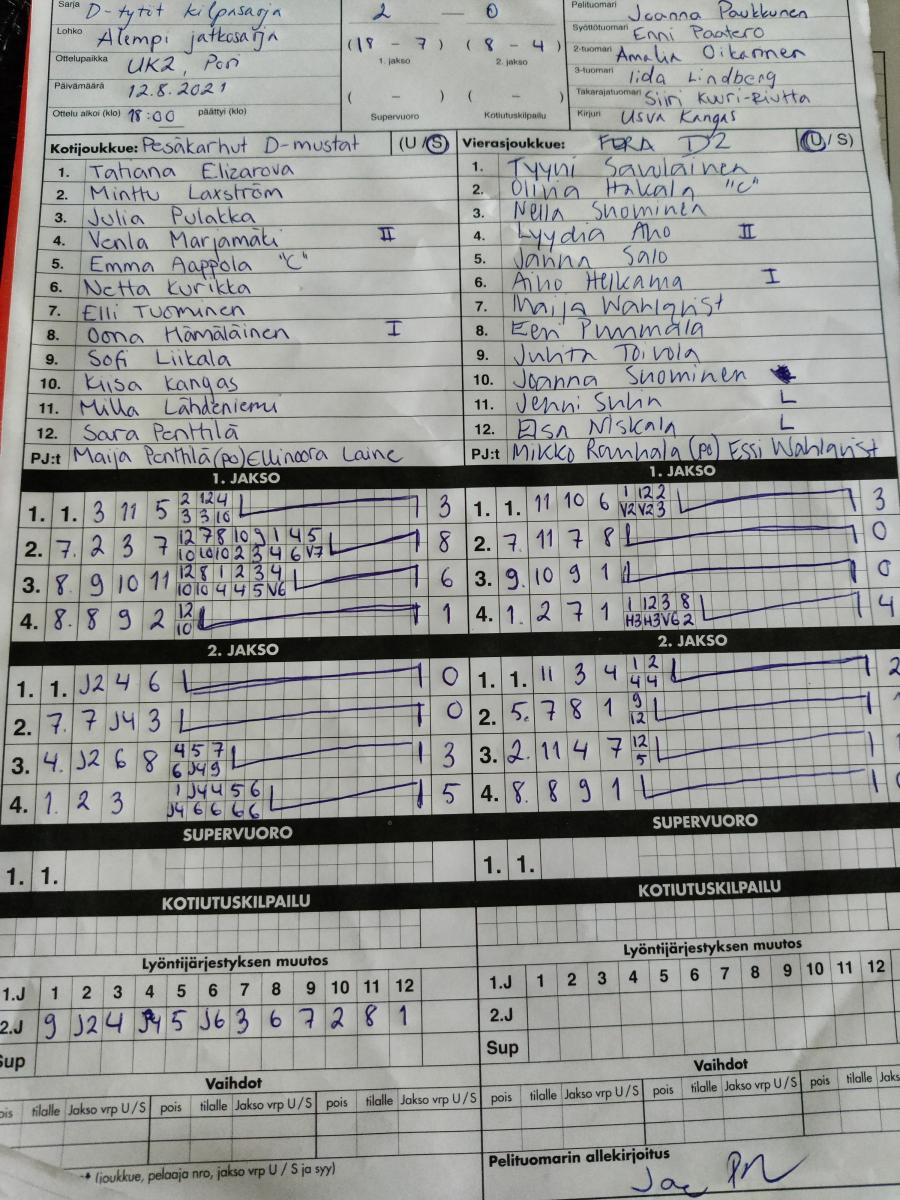 Sarja D-tytöt kilpasarja
Lohko Alempi jatkosarja
Ottelupaikka UK2, Pori
Päivämäärä 12.8.2021
Ottelu alkoi (klo) 18:00 päättyi (klo)
2 — 0
(18 - 7) (8 - 4)
1. jakso 2. jakso
( - ) ( - )
Supervuoro Kotiutuskilpailu
Pelituomari Joanna Paukkunen
Syöttötuomari Enni Paatero
2-tuomari Amalia Oikarinen
3-tuomari Iida Lindberg
Takarajatuomari Siiri Kuuri-Riutta
Kirjuri Usva Kangas
Kotijoukkue: Pesäkarhut D-mustat (U/S)
1. Tatiana Elizarova
2. Minttu Laxström
3. Julia Pulakka
4. Venla Marjamäki II
5. Emma Aappola "C"
6. Netta Kurikka
7. Elli Tuominen
8. Oona Hämäläinen I
9. Sofi Liikala
10. Kiisa Kangas
11. Milla Lähdeniemi
12. Sara Penttilä
PJ:t Maija Penttilä (po) Ellinoora Laine
Vierasjoukkue: FERA D2 (U/S)
1. Tyyni Savolainen
2. Olivia Hakala "C"
3. Nella Suominen
4. Lyydia Aho II
5. Janna Salo
6. Aino Helkama I
7. Maija Wahlqvist
8. Eeri Punmala
9. Juhta Toivola
10. Joanna Suominen
11. Jenni Suhn L
12. Elsa Niskala L
PJ:t Mikko Ranhala (po) Essi Wahlqvist
1. JAKSO
1. 1. 3 11 5 2 12 4 3
3 3 10
2. 7. 2 3 7 12 7 8 10 9 1 4 5 8
10 10 10 2 3 4 6 V7
3. 8. 9 10 11 12 8 1 2 3 4 6
10 10 4 4 5 V6
4. 8. 8 9 2 12 1
10
1. JAKSO
1. 1. 11 10 6 1 12 2 3
V2 V2 3
2. 7. 11 7 8 0
3. 9. 10 9 1 0
4. 1. 2 7 1 1 12 3 8 4
H3 H3 V6 2
2. JAKSO
1. 1. J2 4 6 0
2. 7. 7 J4 3 0
3. 4. J2 6 8 4 5 7 3
6 J4 9
4. 1. 2 3 1 J4 4 5 6 5
J4 6 6 6 6
2. JAKSO
1. 1. 11 3 4 1 2 2
4 4
2. 5. 7 8 1 9
12
3. 2. 11 4 7 12 1
5
4. 8. 8 9 1
SUPERVUORO
1. 1.
SUPERVUORO
1. 1.
KOTIUTUSKILPAILU
KOTIUTUSKILPAILU
Lyöntijärjestyksen muutos
1.J 1 2 3 4 5 6 7 8 9 10 11 12
2.J 9 J2 4 J4 5 J6 3 6 7 2 8 1
Sup
Lyöntijärjestyksen muutos
1.J 1 2 3 4 5 6 7 8 9 10 11 12
2.J
Sup
Vaihdot
pois tilalle Jakso vrp U/S pois tilalle Jakso vrp U/S pois tilalle Jakso vrp U/S
Vaihdot
pois tilalle Jakso vrp U/S pois tilalle Jakso vrp U/S pois tilalle Jakso
(joukkue, pelaaja nro, jakso vrp U/S ja syy)
Pelituomarin allekirjoitus